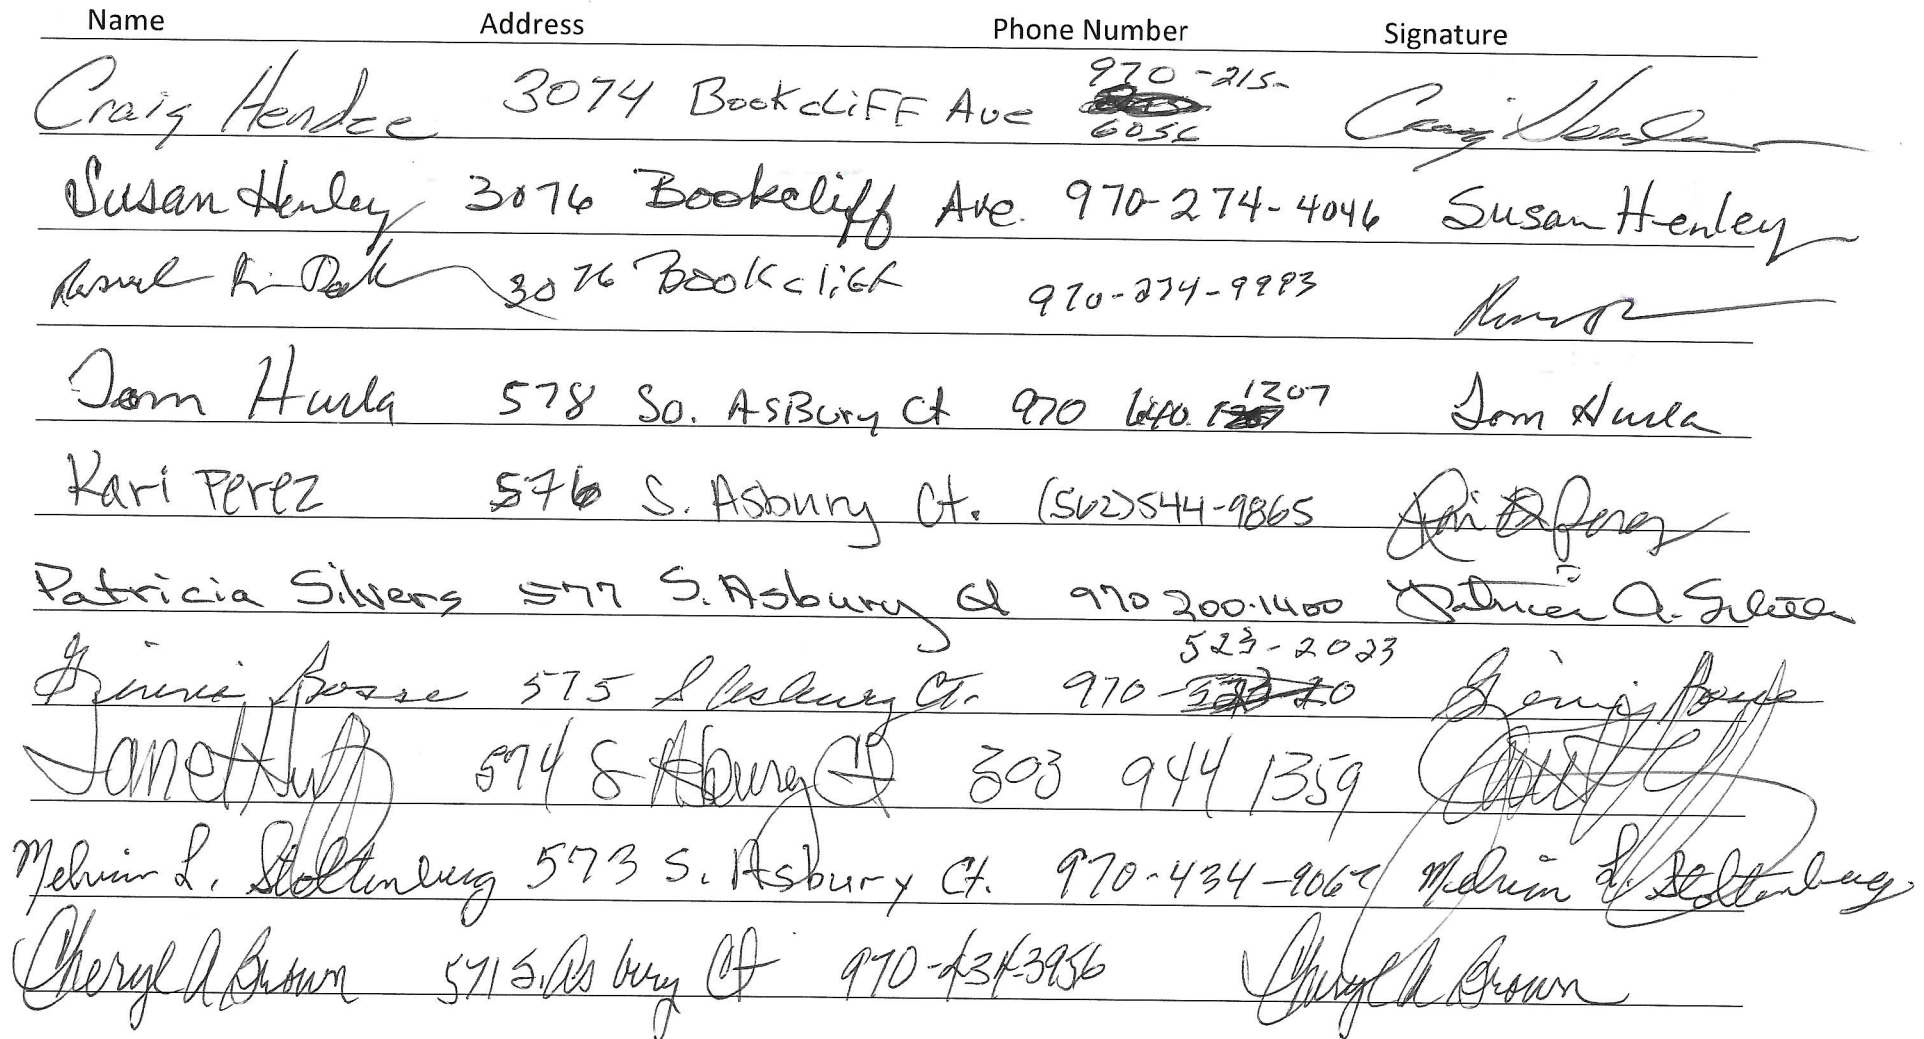 Name Address Phone Number Signature
Craig 3074 BookcliFF Ave 970-215-6056 Craig
Susan Henley 3076 Bookcliff Ave. 970-274-4046 Susan Henley
3076 Bookcliff 970-274-9993
Tom Hurla 578 So. AsBury Ct 970 640 1207 Tom Hurla
Kari Perez 576 S. Asbury Ct. (562)544-9865 Perez
Patricia Silvers 577 S. Asbury Ct 970 200.1400 Patricia A.
Ginnie Bosse 575 S Asbury Ct. 970-523-2023 Ginnie Bosse
Janet Huff 574 S Asbury Ct 303 944 1359
Melvin L. Stoltenburg 573 S. Asbury Ct. 970-434-906 Melvin L. Stoltenburg
Cheryl A Brown 571 S. Asbury Ct 970-434-3956 Cheryl A Brown